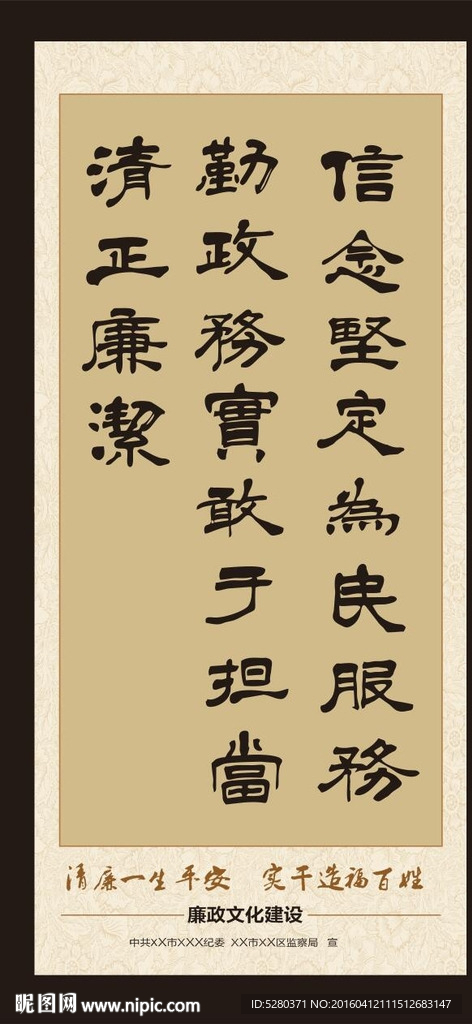 信念堅定為民服務
勤政務實敢于担當
清正廉潔
清廉一生平安 实干造福百姓
廉政文化建设
中共XX市XXX纪委 XX市XX区监察局 宣
昵图网 www.nipic.com
ID:5280371 NO:20160412111512683147